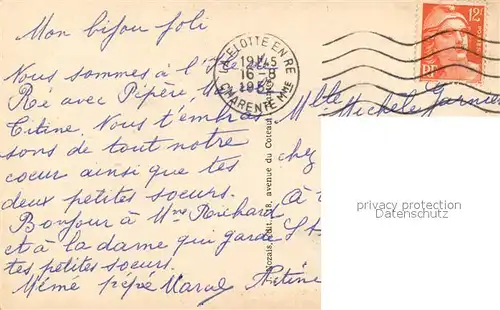 Mon bijou joli
Nous sommes à l'Ile de
Ré avec Pépère, M
Titine. Nous t'embras
sons de tout notre
coeur ainsi que tes
deux petites soeurs.
Bonjour à Mme Richard
et à la dame qui garde
tes petites soeurs.
Mémé pépé Marcel Titine
LA FLOTTE EN RE
19H45
16-8
CHARENTE Mme
12F
POSTES
RF
Mlle
Michèle Garnier
chez
à
St
Edit. 18, avenue du Coteau
privacy protection
Datenschutz